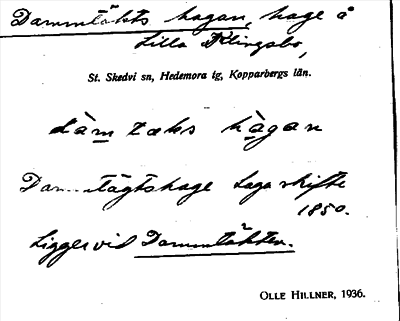 Dammtäkts hagan, hage å
Lilla Klingsbo,
St. Skedvi sn, Hedemora tg, Kopparbergs län.
dàm tæks hàgan
Dammtägtshage Laga skifte
1850.
Ligger vid Dammtäkten.
OLLE HILLNER, 1936.